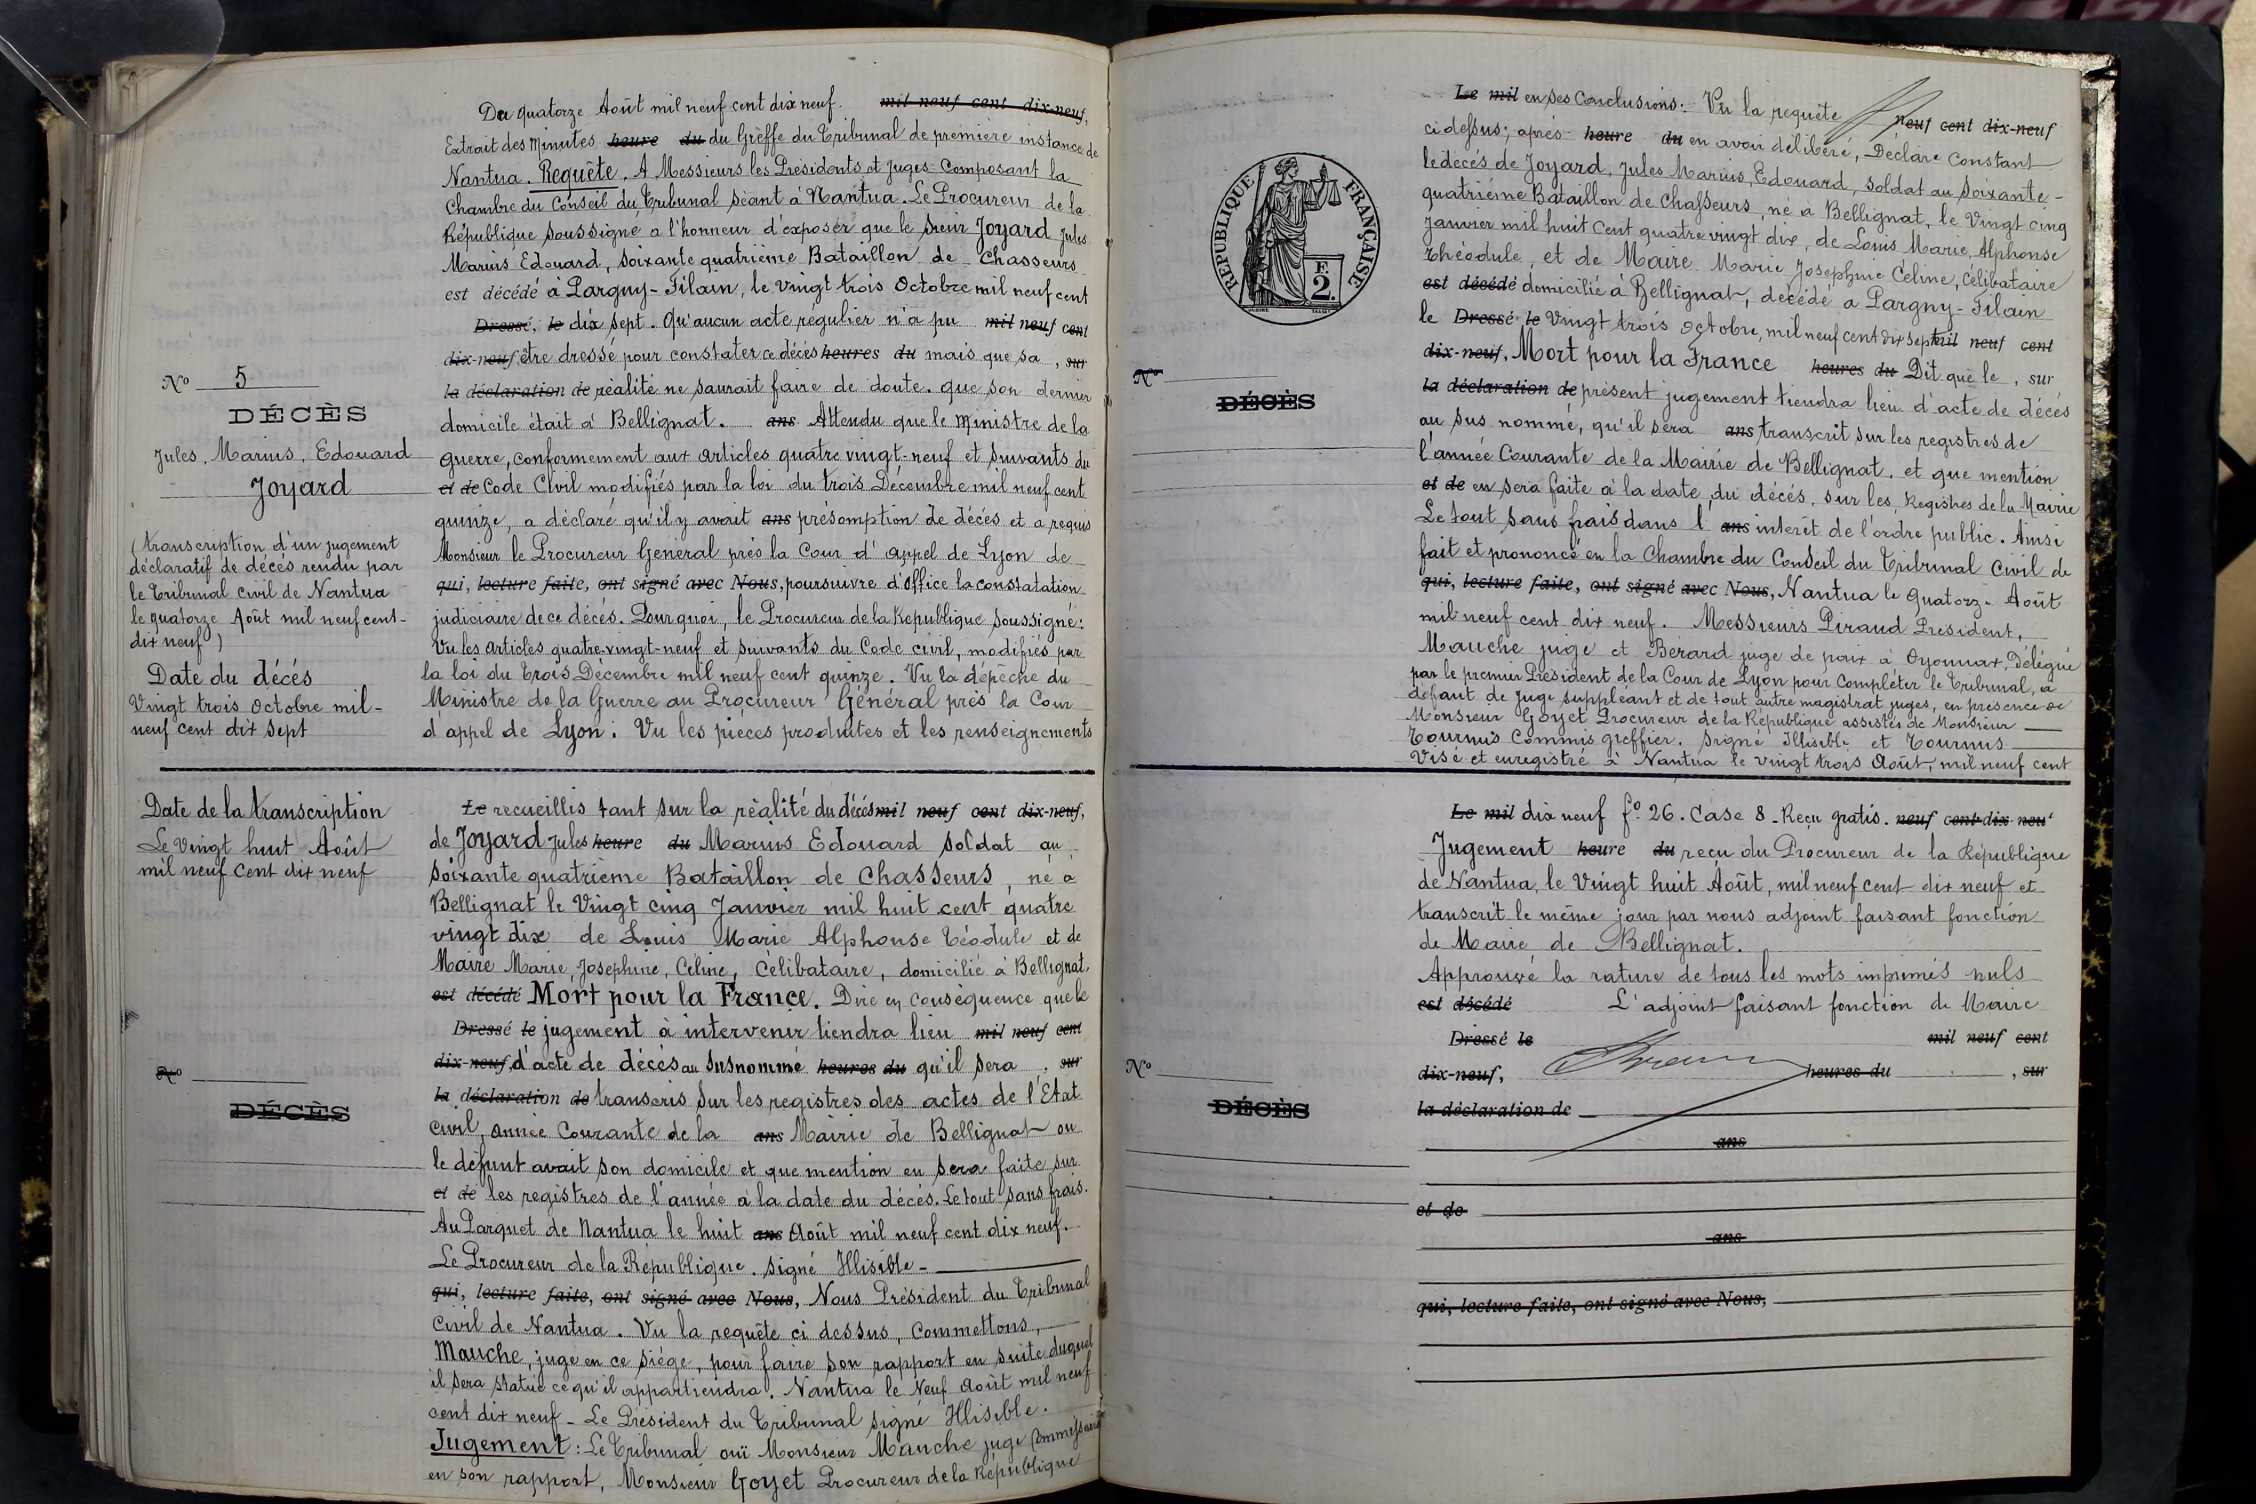 Du quatorze Août mil neuf cent dix neuf. mil neuf cent dix-neuf,
Extrait des Minutes heure du du Grèffe du Tribunal de première instance de
Nantua. Requête. A Messieurs les Présidents et Juges Composant la
Chambre du Conseil du Tribunal séant à Nantua. Le Procureur de la
République soussigné a l'honneur d'exposer que le sieur Joyard Jules
Marius Edouard, soixante quatrième Bataillon de Chasseurs
est décédé a Pargny-Filain, le vingt trois Octobre mil neuf cent
Dressé, le dix sept. Qu'aucun acte regulier n'a pu mil neuf cent
dix-neuf être dressé pour constater ce décès heures du mais que sa , sur
la déclaration de réalité ne saurait faire de doute. que son dernier
domicile était à Bellignat. ans Attendu que le Ministre de la
guerre, conformement aux articles quatre vingt-neuf et suivants du
et de Code Civil modifiés par la loi du trois Décembre mil neuf cent
quinze, a déclaré qu'il y avait ans présomption de décès et a requis
Monsieur le Procureur Général près la Cour d'appel de Lyon de
qui, lecture faite, ont signé avec Nous, poursuivre d'Office la constatation
judiciaire de ce décès. Pourquoi, le Procureur de la République soussigné:
Vu les articles quatre-vingt-neuf et suivants du Code civil, modifiés par
la loi du trois Décembre mil neuf cent quinze. Vu la dépêche du
Ministre de la Guerre au Procureur Général près la Cour
d'appel de Lyon: Vu les pièces produites et les renseignements
No 5
DÉCÈS
Jules, Marius, Edouard
Joyard
(transcription d'un jugement
déclaratif de décès rendu par
le Tribunal civil de Nantua
le quatorze Août mil neuf cent-
dix neuf)
Date du décès
Vingt trois Octobre mil-
neuf cent dix sept
Date de la transcription
Le Vingt huit Août
mil neuf cent dix neuf
Le recueillis tant sur la réalité du décès mil neuf cent dix-neuf,
de Joyard Jules heure du Marius Edouard soldat au
soixante quatrième Bataillon de Chasseurs, né à
Bellignat le Vingt cinq Janvier mil huit cent quatre
vingt dix de Louis Marie Alphonse Téodule et de
Maire Marie, Josephine, Céline, Célibataire, domicilié à Bellignat,
est décédé Mort pour la France. Dire en conséquence que le
Dressé le jugement à intervenir tiendra lieu mil neuf cent
dix-neuf, d'acte de décès au susnommé heures du qu'il sera , sur
la déclaration de transcris sur les registres des actes de l'Etat
Civil, année Courante de la ans Mairie de Bellignat ou
le défunt avait son domicile et que mention en sera faite sur
et de les registres de l'année à la date du décès. Le tout sans frais.
Au Parquet de Nantua le huit ans Août mil neuf cent dix neuf.
Le Procureur de la République. signé Illisible -
qui, lecture faite, ont signé avec Nous, Nous Président du Tribunal
Civil de Nantua. Vu la requête ci dessus, Commettons,
Mauche, juge en ce siège, pour faire son rapport en suite duquel
il sera statué ce qu'il appartiendra. Nantua le Neuf Août mil neuf
cent dix neuf - Le Président du Tribunal signé Illisible.
Jugement: Le Tribunal ouï Monsieur Mauche juge Commissaire
en son rapport, Monsieur Goyet Procureur de la République
No
DÉCÈS
Le mil en ses Conclusions. Vu la requête neuf cent dix-neuf
ci dessus; après heure du en avoir délibéré, Déclare Constant
le décès de Joyard, Jules Marius, Edouard, soldat au soixante-
quatrième Bataillon de chasseurs, né à Bellignat, le Vingt cinq
Janvier mil huit cent quatre vingt dix, de Louis Marie, Alphonse
Théodule, et de Maire Marie Josephine Céline, Célibataire
est décédé domicilié à Bellignat, décédé a Pargny-Filain
le Dressé le Vingt trois Octobre, mil neuf cent dix sept mil neuf cent
dix-neuf, Mort pour la France heures du Dit que le , sur
la déclaration de présent jugement tiendra lieu d'acte de décès
au sus nommé, qu'il sera ans transcrit sur les registres de
l'année Courante de la Mairie de Bellignat. et que mention
et de en sera faite à la date du décès, sur les Registres de la Mairie
Le tout sans frais dans l' ans intérêt de l'ordre public. Ainsi
fait et prononcé en la Chambre du Conseil du Tribunal Civil de
qui, lecture faite, ont signé avec Nous, Nantua le Quatorze Août
mil neuf cent dix neuf. Messieurs Piraud Président,
Mauche juge et Bérard juge de paix à Oyonnax, Délégué
par le premier Président de la Cour de Lyon pour compléter le Tribunal, a
défaut de Juge suppléant et de tout autre magistrat juges, en presence de
Monsieur Goyet Procureur de la République assistés de Monsieur
Tournus Commis greffier. Signé Illisible et Tournus
Visé et enregistré à Nantua le vingt trois Août, mil neuf cent
RÉPUBLIQUE FRANÇAISE
F.
2.
No
DÉCÈS
Le mil dix neuf fo 26. Case 8 - Reçu gratis. neuf cent dix neuf
Jugement heure du reçu du Procureur de la République
de Nantua, le Vingt huit Août, mil neuf cent dix neuf et
transcrit le même jour par nous adjoint faisant fonction
de Maire de Bellignat.
Approuvé la rature de tous les mots imprimés nuls
est décédé L'adjoint faisant fonction de Maire
Dressé le mil neuf cent
dix-neuf, heures du , sur
la déclaration de
ans
et de
ans
qui, lecture faite, ont signé avec Nous,
No
DÉCÈS